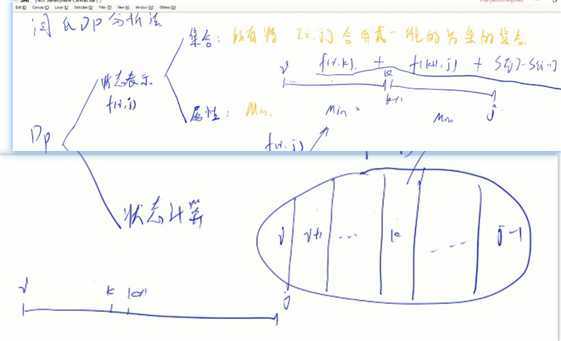 闫氏DP分析法
集合: 所有将[i,j]合并成一堆的方案的集合
状态表示
f(i,j)
f(i,k) + f(k+1,j) + S[j]-S[i-1]
i k k+1 j
属性: Min
Min
Min
f(i,j)
DP
状态计算
i i+1 ... k ... j-1
i k k+1 j